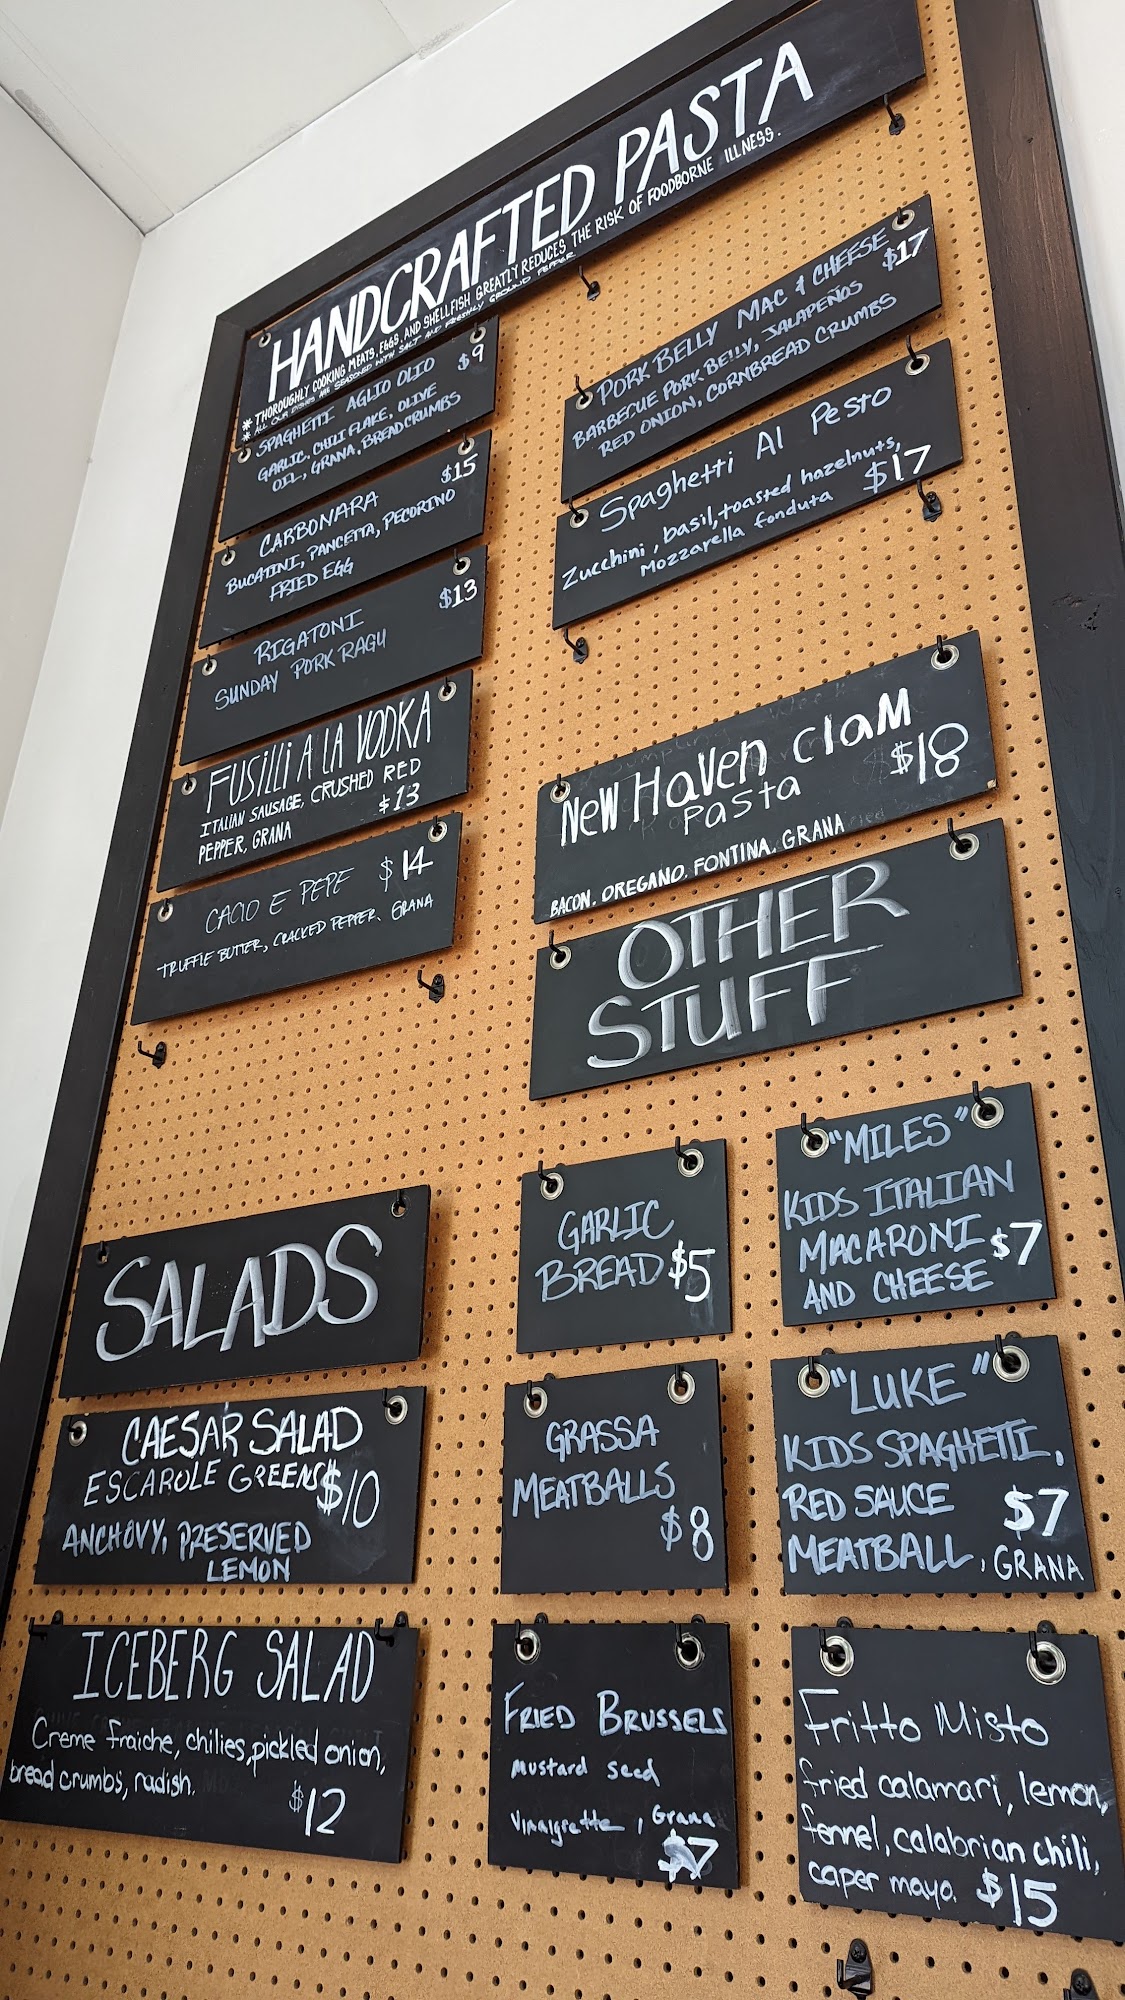 HANDCRAFTED PASTA
* THOROUGHLY COOKING MEATS, EGGS, AND SHELLFISH GREATLY REDUCES THE RISK OF FOODBORNE ILLNESS.
* ALL OUR DISHES ARE SEASONED WITH SALT AND FRESHLY GROUND PEPPER
SPAGHETTI AGLIO OLIO $9
GARLIC, CHILI FLAKE, OLIVE
OIL, GRANA, BREADCRUMBS
CARBONARA $15
BUCATINI, PANCETTA, PECORINO
FRIED EGG
RIGATONI $13
SUNDAY PORK RAGU
FUSILLI A LA VODKA
ITALIAN SAUSAGE, CRUSHED RED
PEPPER, GRANA $13
CACIO E PEPE $14
TRUFFLE BUTTER, CRACKED PEPPER, GRANA
PORK BELLY MAC & CHEESE $17
BARBECUE PORK BELLY, JALAPEÑOS
RED ONION, CORNBREAD CRUMBS
Spaghetti Al Pesto
Zucchini, basil, toasted hazelnuts, $17
Mozzarella fonduta
NEW HAVEN CLAM
PASTA $18
BACON, OREGANO, FONTINA, GRANA
SALADS
CAESAR SALAD
ESCAROLE GREENS $10
ANCHOVY, PRESERVED
LEMON
ICEBERG SALAD
Creme fraiche, chilies, pickled onion,
bread crumbs, radish.
$12
OTHER
STUFF
GARLIC
BREAD $5
"MILES"
KIDS ITALIAN
MACARONI $7
AND CHEESE
GRASSA
MEATBALLS
$8
"LUKE"
KIDS SPAGHETTI,
RED SAUCE $7
MEATBALL, GRANA
FRIED BRUSSELS
mustard seed
vinaigrette, Grana
$7
Fritto Misto
fried calamari, lemon,
fennel, calabrian chili,
caper mayo. $15